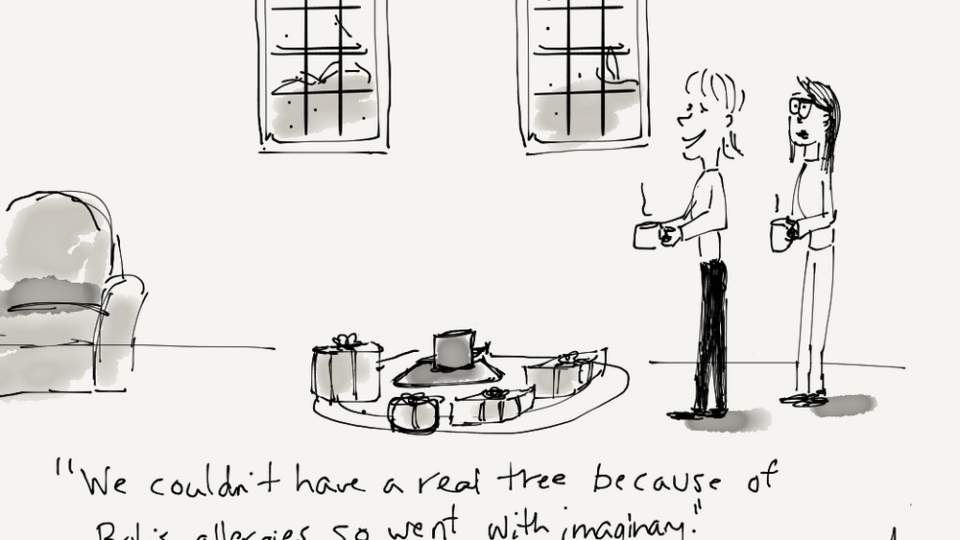 "We couldn't have a real tree because of
Bob's allergies so went with imaginary."